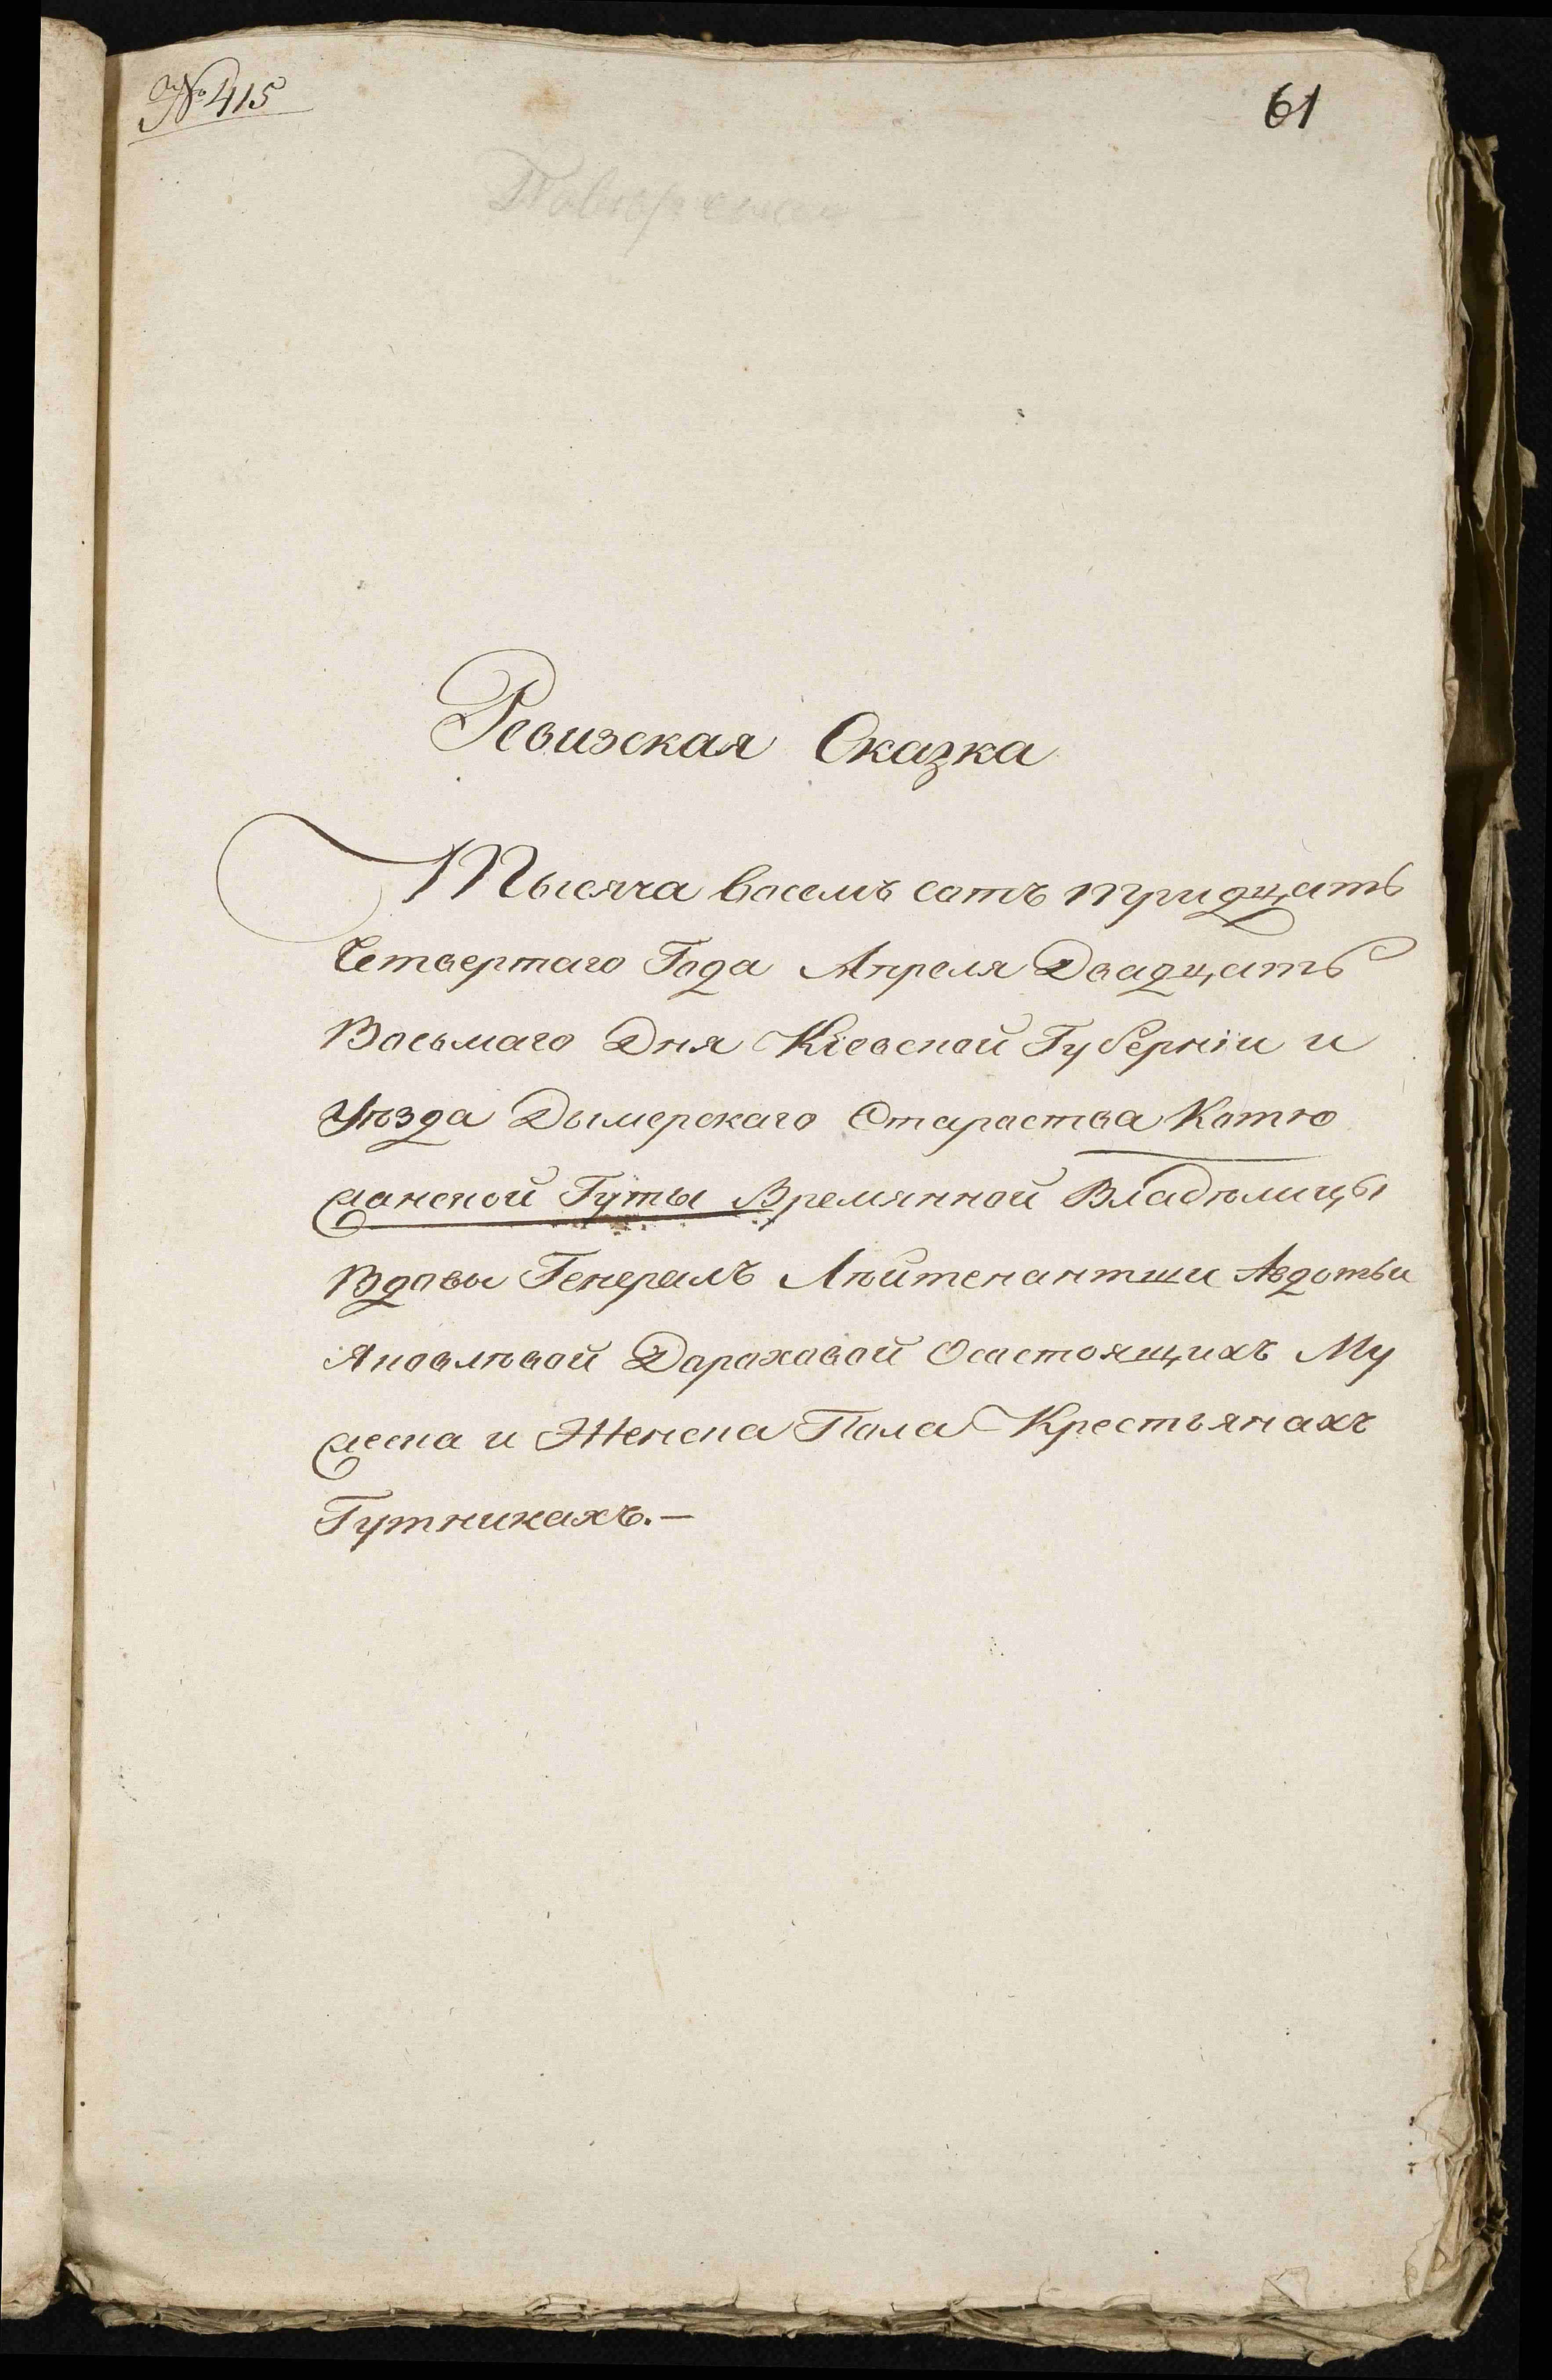 № 415
61
Ревизская Сказка
Тысяча восемъ сотъ тридцать
Четвертаго Года Апреля Двадцать
Восьмаго Дня Кіевской Губерніи и
Уѣзда Дымерскаго Староства Катю
жанской Гуты Времянной Владѣлицы
Вдовы Генералъ Лѣйтенантши Авдотьи
Яковлѣвой Дараховой О састоящихъ Му
жеска и Женска Пола Крестьянахъ
Гутникахъ.—